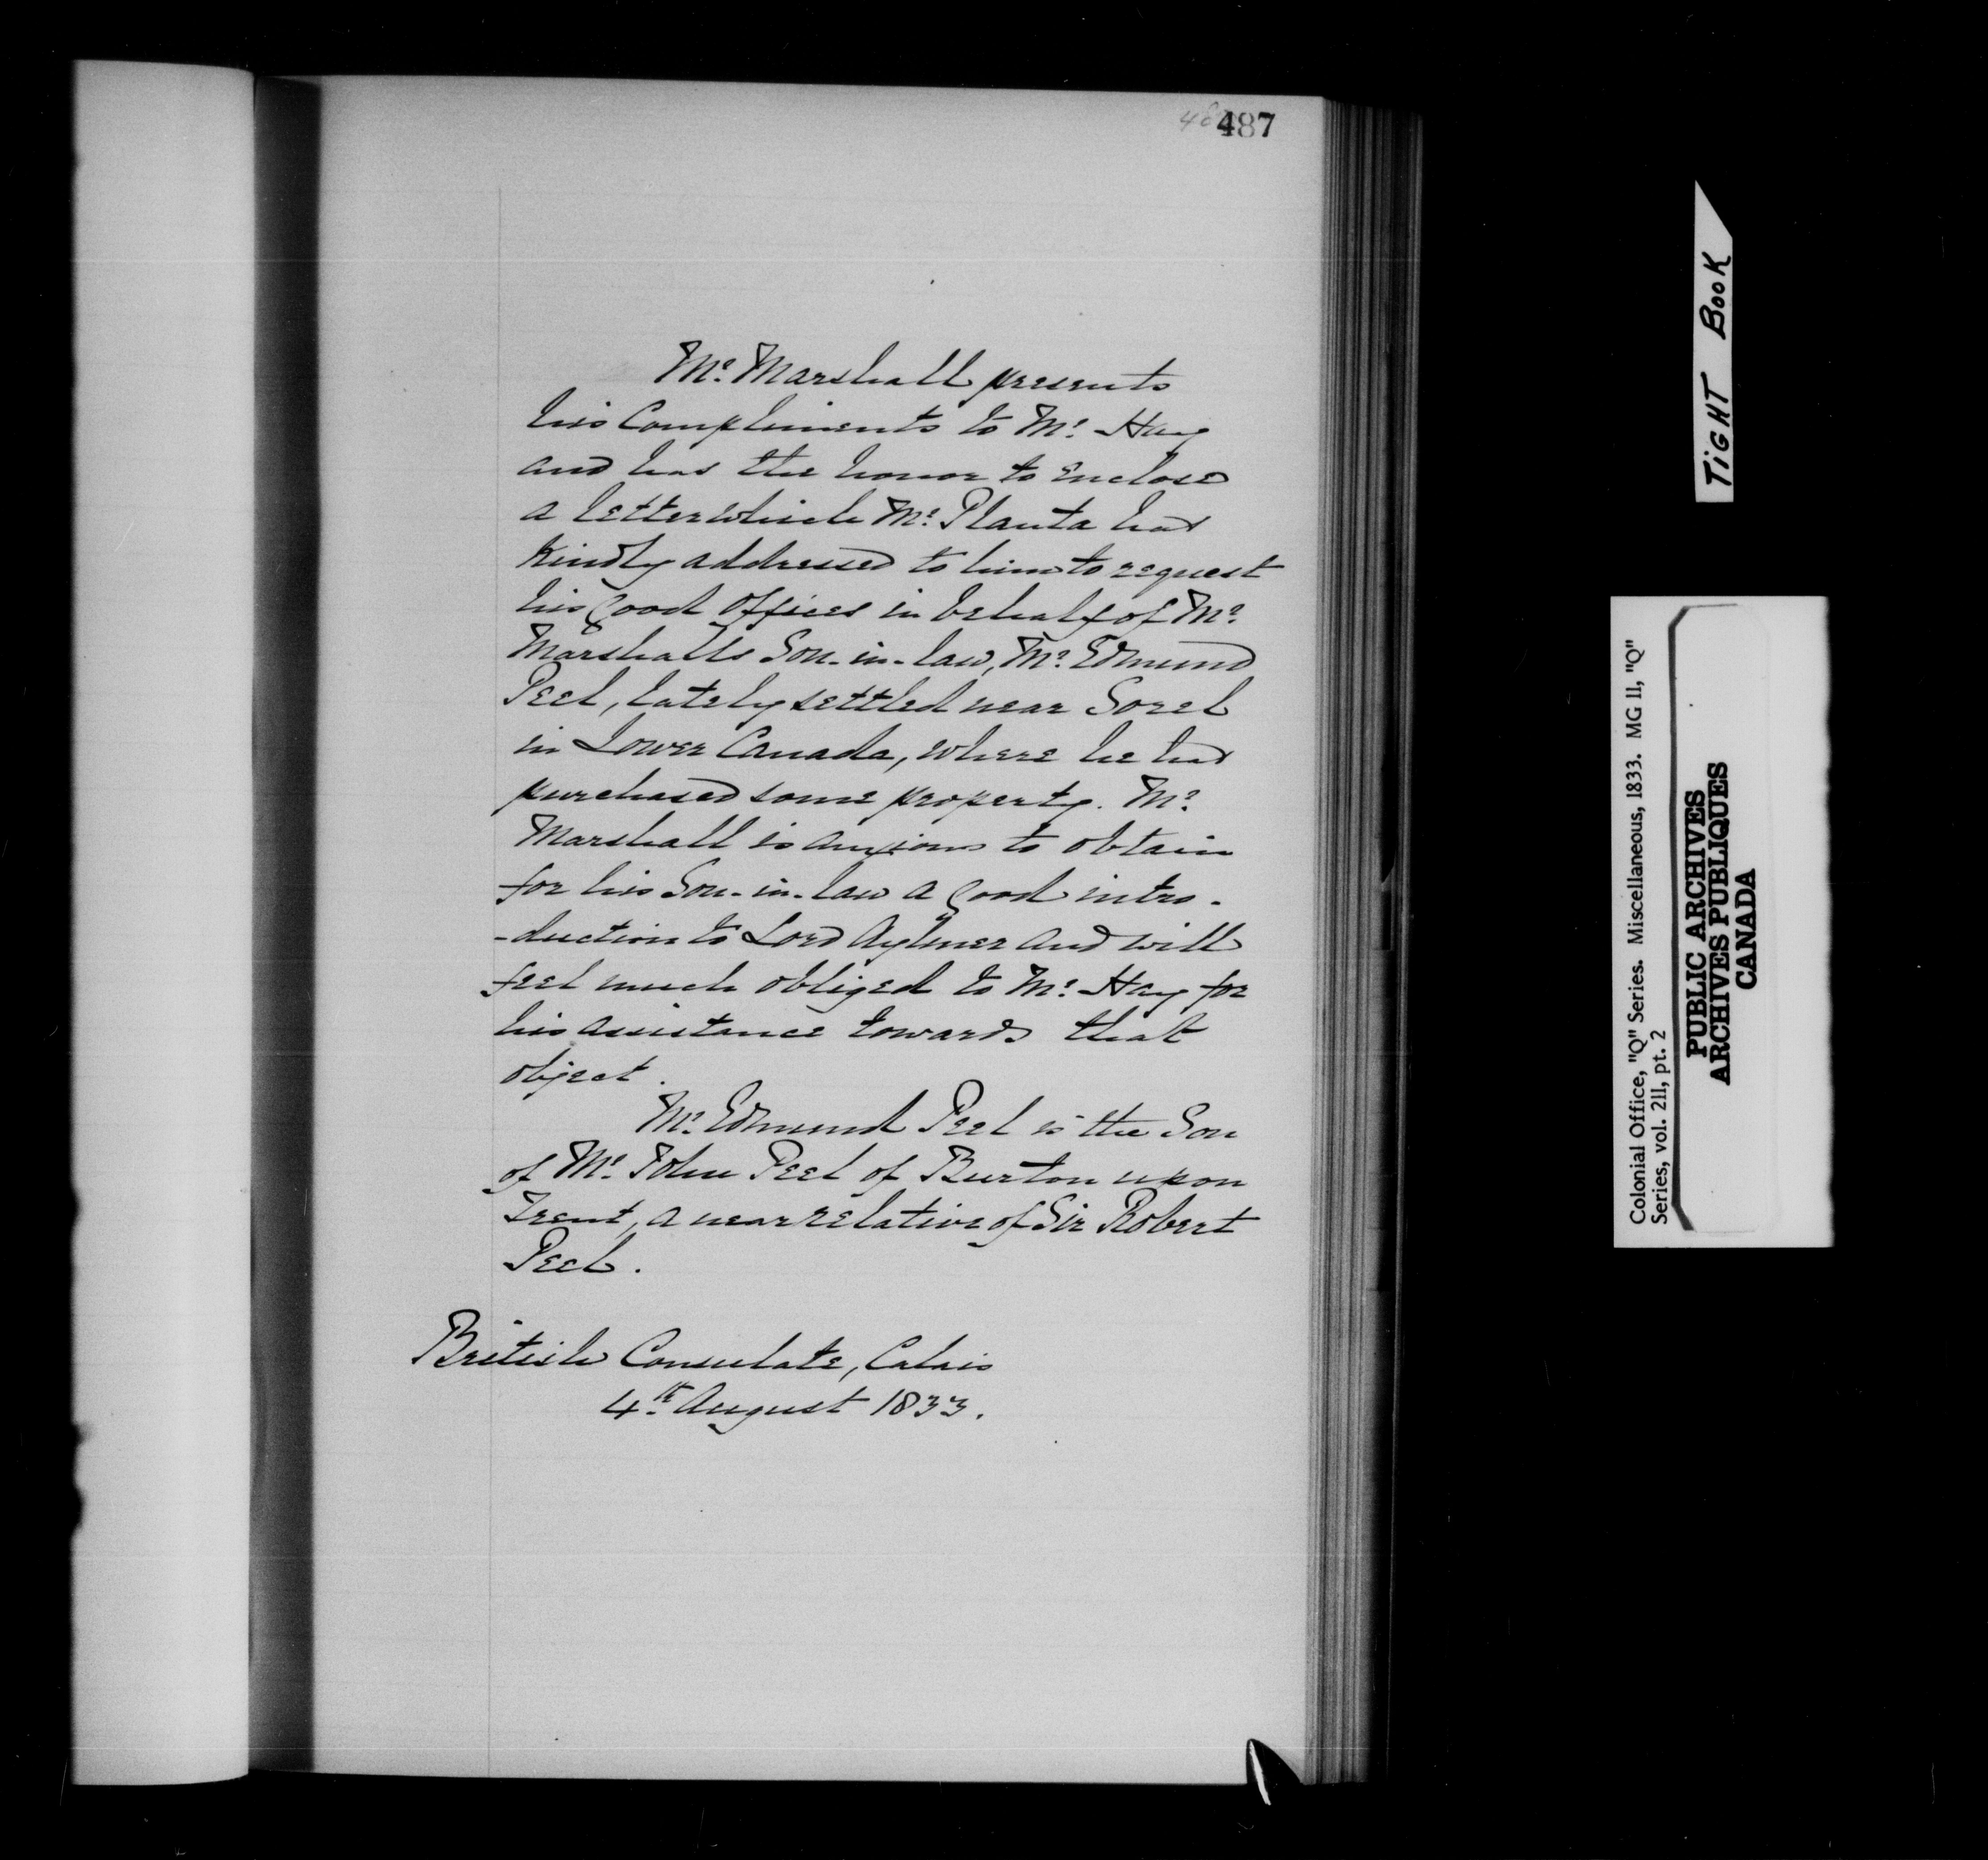 487
Mr. Marshall presents
his Compliments to Mr. Hay
and has the honor to Enclose
a letter which Mr. Planta has
Kindly addressed to him to request
his good Offices in behalf of Mr.
Marshalls Son-in-law, Mr. Edmund
Peel, lately settled near Sorel
in Lower Canada, where he has
purchased some property. Mr.
Marshall is anxious to obtain
for his Son-in-law a good intro-
-duction to Lord Aylmer and will
feel much obliged to Mr. Hay for
his assistance towards that
object.
Mr. Edmund Peel is the Son
of Mr. John Peel of Burton upon
Trent, a near relative of Sir Robert
Peel.
British Consulate, Calais
4th August 1833.
TIGHT BOOK
Colonial Office, "Q" Series. Miscellaneous, 1833. MG 11, "Q"
Series, vol. 211, pt. 2
PUBLIC ARCHIVES
ARCHIVES PUBLIQUES
CANADA